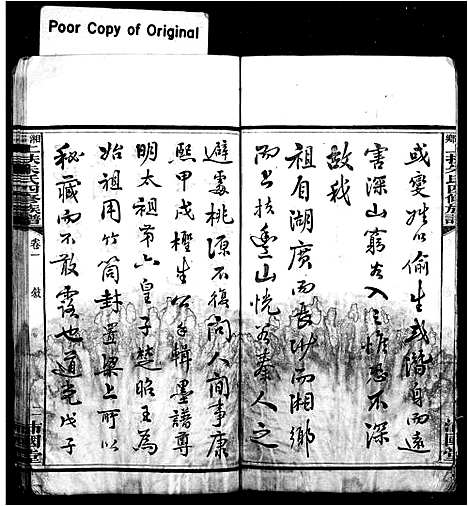 Poor Copy of Original
或變姓以偷生或潛身而遠
害深山窮谷入之惟恐不深
故我
祖自湖廣而長沙而湘鄉
而上扶壟山恍若秦人之
避處桃源不復向人間事康
熙甲戌樫生公手輯墨譜尊
明太祖第六皇子楚昭王為
始祖用竹筒封置梁上所以
秘藏而不敢露也道光戊子
湘
氏四修族譜
卷一
二